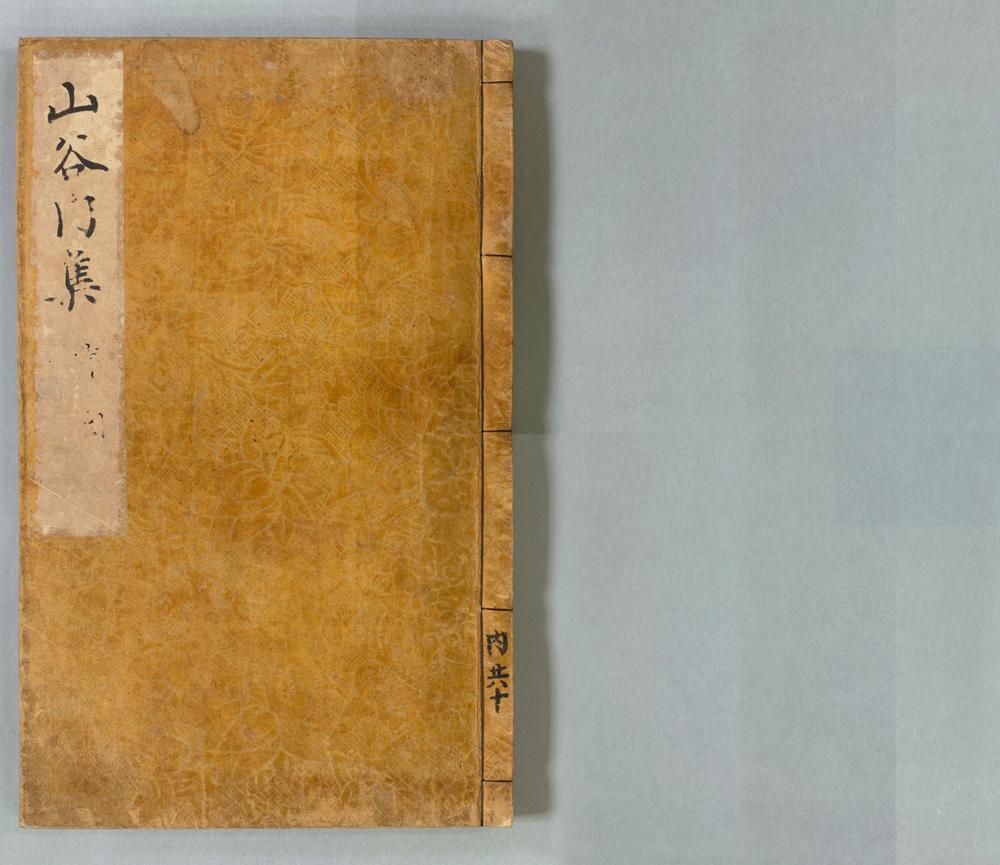 山谷内集
内 共十